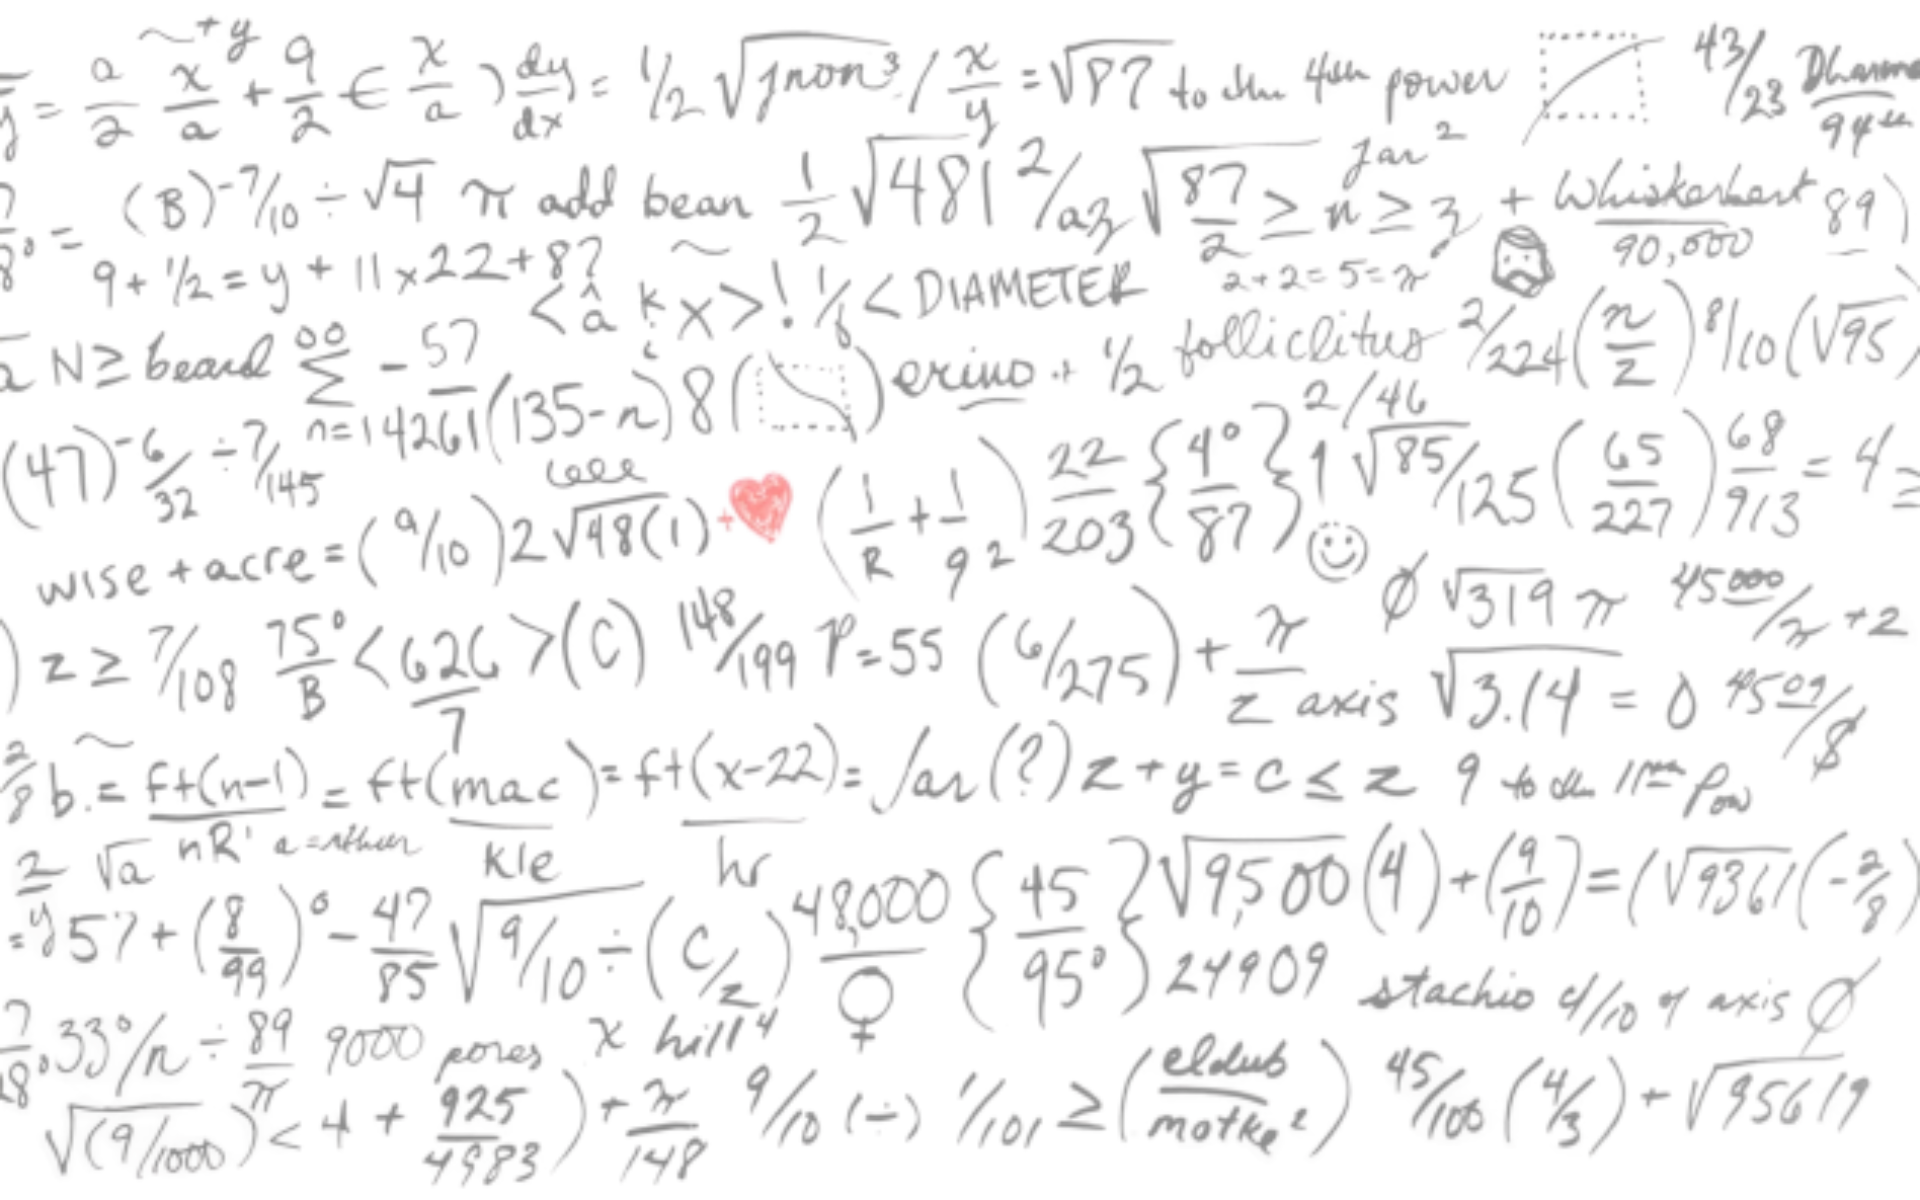 y = a/2 x/a ~+y + 9/2 ∈ x/a ) dy/dx = 1/2 √ / x/y = √87 to the 4th power 43/23 94th
(B)^-7/10 ÷ √4 π add bean 1/2 √481 2/az √87/2 ≥ n ≥ z jar² + Whiskerbert/90,000 89)
9 + 1/2 = y + 11 x 22 + 8? < â k x > ! < DIAMETER 2+2=5=π
N ≥ beard ∞ Σ n=14261 -57 (135-n) 8 ( ) erino + 1/2 folliclitus 2/224 (n/z) 8/10 (√95)
(47)^-6/32 ÷ 7/145 (1/R + 1/9 2) 22/203 {4°/87} 2/46 1 √85/125 (65/227) 68/913 = 4 ≥
wise + acre = (9/10) 2 √48(1) + ♥ ☺ ø √319 π 45000/π + 2
) z ≥ 7/108 75°/B < 626/7 > (C) 148/199 P=55 (6/275) + π/z axis √3.14 = 0 4509/8
2/8 b. = ft(n-1)/nR' = ft(mac)/kle = ft(x-22)/hr = ∫ar(?) z + y = c ≤ z 9 to the 11th pow
2/y √a
= 57 + (8/99)° - 47/85 √9/10 ÷ (C/z) 48,000/♀ {45/95°} √9,500 (4) + (9/10) = (√9361 (-2/8)
24909 stachio 4/10 of axis ø
7/18 .33°/n ÷ 89/π 9000 pores x hill⁴
√(9/1000) < 4 + 925/4983 ) + π/148 9/10 (÷) 1/101 ≥ (eldub/motke²) 45/100 (4/3) + √95619